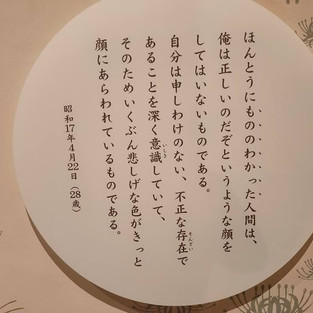 ほんとうにもののわかった人間は、
俺は正しいのだぞというような顔を
してはいないものである。
自分は申しわけのない、不正な存在で
あることを深く意識していて、
そのためいくぶん悲しげな色がきっと
顔にあらわれているものである。
昭和17年4月22日（28歳）